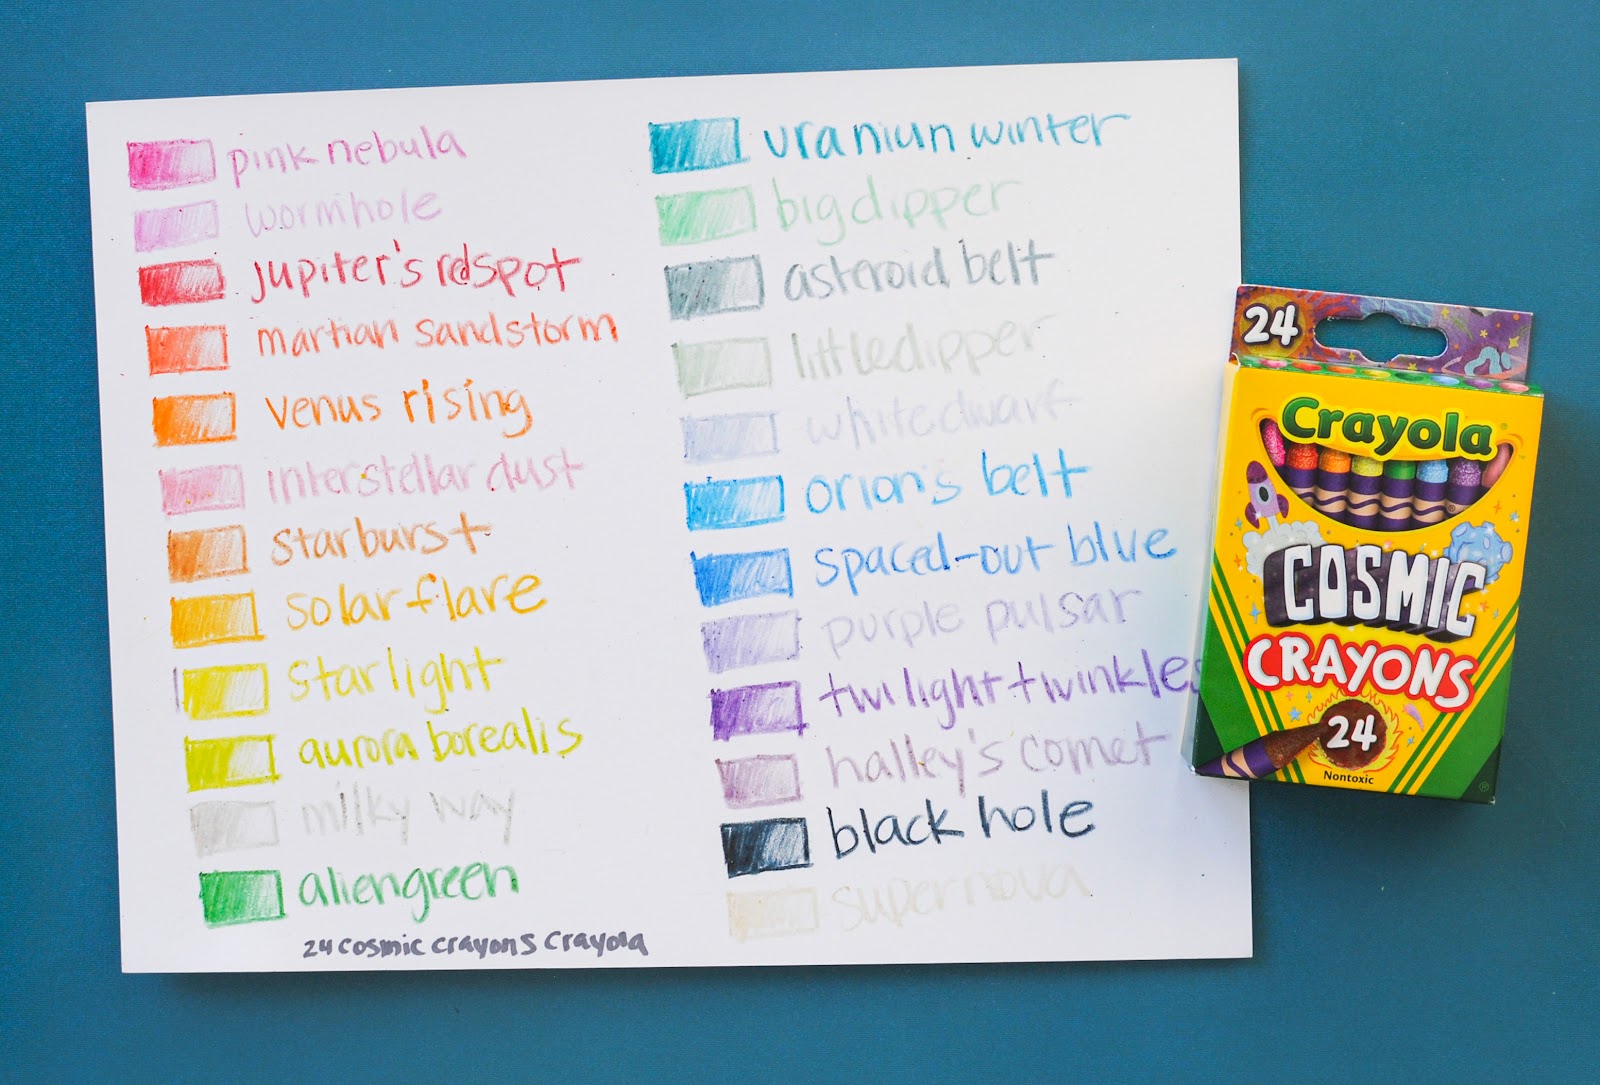 pink nebula
wormhole
jupiter's redspot
martian sandstorm
venus rising
interstellar dust
starburst
solar flare
starlight
aurora borealis
milky way
aliengreen
24 cosmic crayons crayola
uraniun winter
big dipper
asteroid belt
little dipper
white dwarf
orion's belt
spaced-out blue
purple pulsar
twilight twinkles
halley's comet
black hole
supernova
24
Crayola
COSMIC
CRAYONS
24
Nontoxic